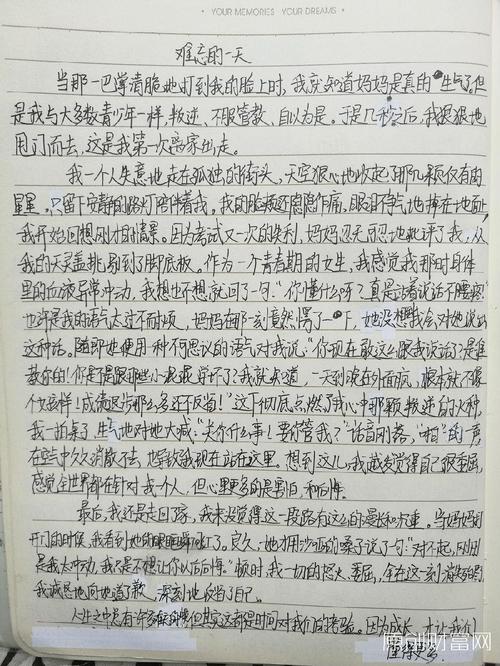 YOUR MEMORIES YOUR DREAMS
难忘的一天
当那一巴掌清脆地打到我的脸上时，我就知道妈妈是真的生气了。但
是我与大多数青少年一样，叛逆、不服管教、自以为是。于是几秒之后，我狠狠地
甩门而去，这是我第一次离家出走。
我一个人失意地走在孤独的街头，天空狠心地收起了那几颗仅有的
星星，只留下安静的路灯陪伴着我。我的脸颊还隐隐作痛，眼泪不争气地掉在地面，
我开始回想刚才的情景。因为考试又一次的失利，妈妈忍无可忍地批评了我，从
我的天灵盖批到了脚底板。作为一个青春期的女生，我感觉我那时身体
里的血液异常冲动，我想也不想就回了一句："你懂什么呀？真是站着说话不腰疼！"
也许是我的语气太过不耐烦，妈妈在那一刻竟然愣了一下，她没想我会对她说出
这种话。随即她便用一种不可思议的语气对我说："你现在敢这么跟我说话了？是谁
教你的！你是不是跟那些小混混学坏了？我就知道，一天到晚在外面疯，根本就不像
个女孩样！成绩退步那么多还不反省！"这下彻底点燃了我心中那颗叛逆的火种，
我一拍桌子，生气地对她大喊："关你什么事！要你管我？"话音刚落，"啪"的一声
在空中久久消散不去，也导致我现在站在这里。想到这儿，我越发觉得自己很委屈，
感觉全世界都在针对我一个人，但心里更多的是害怕和后悔。
最后，我还是走回了家，我从没觉得这一段路有这么的漫长和沉重。当妈妈
开门的时候，我看到她的眼睛红了。良久，她才用沙哑的嗓子说了句："对不起，刚刚
是我太冲动，我是不想让你以后后悔。"顿时，我一切的怒火、委屈，全在这一刻消失殆尽，
我诚恳地向她道了歉，深刻地反省了自己。
人生之中总有许多 但其实这都是时间对我们的考验。因为成长，才让我们
懂得
原创财富网